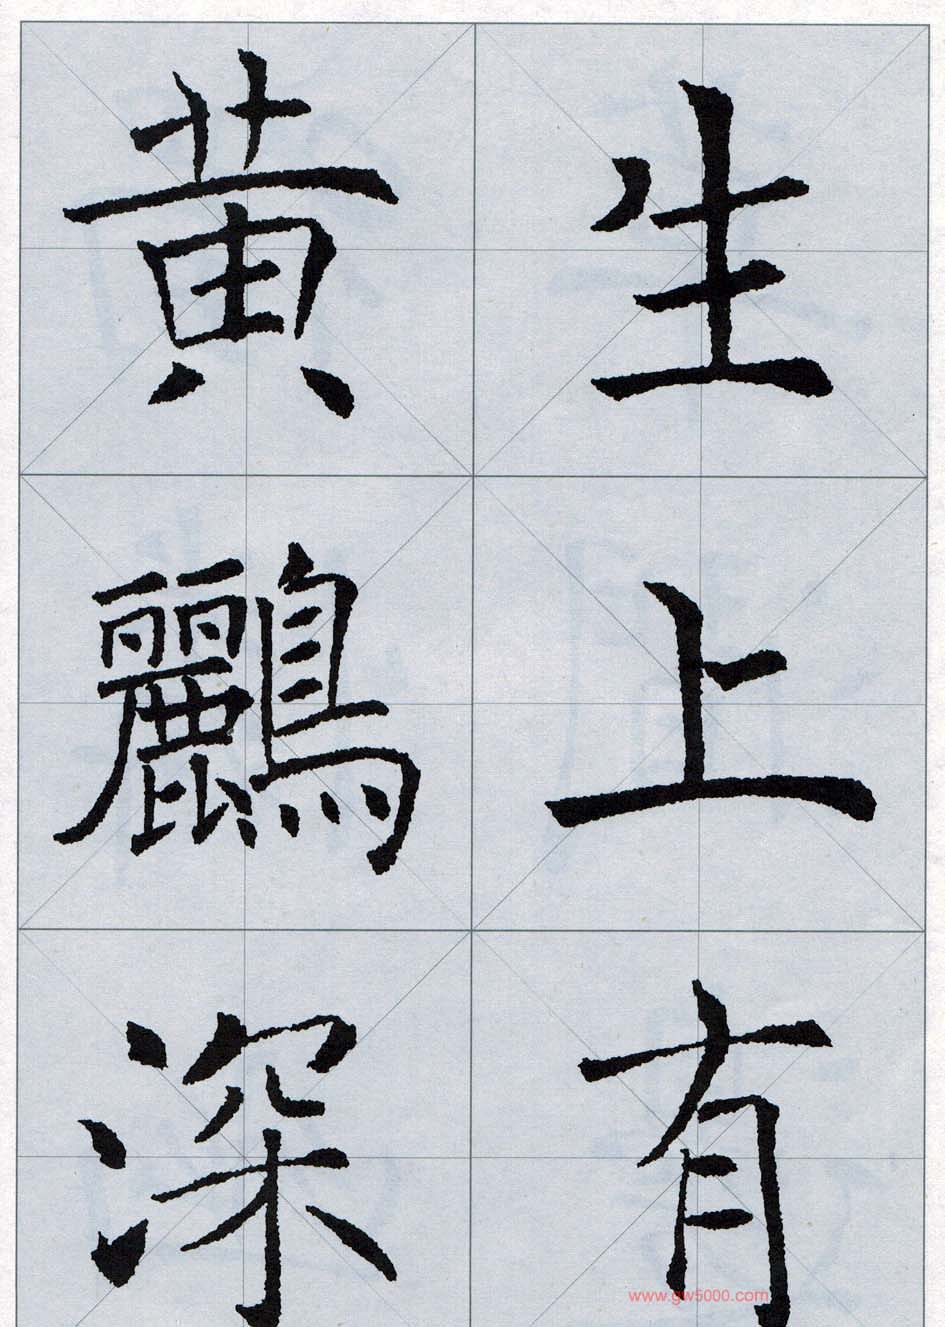 生上有
黄鸝深
www.gw5000.com